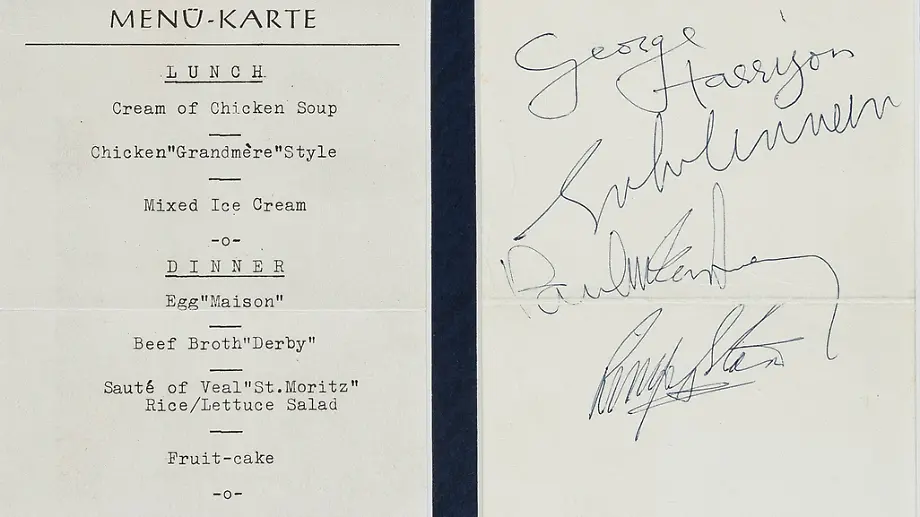 MENÜ-KARTE
LUNCH
Cream of Chicken Soup
Chicken"Grandmère"Style
Mixed Ice Cream
-o-
DINNER
Egg"Maison"
Beef Broth"Derby"
Sauté of Veal"St.Moritz"
Rice/Lettuce Salad
Fruit-cake
-o-
George
Harrison
John Lennon
Paul McCartney
Ringo Starr